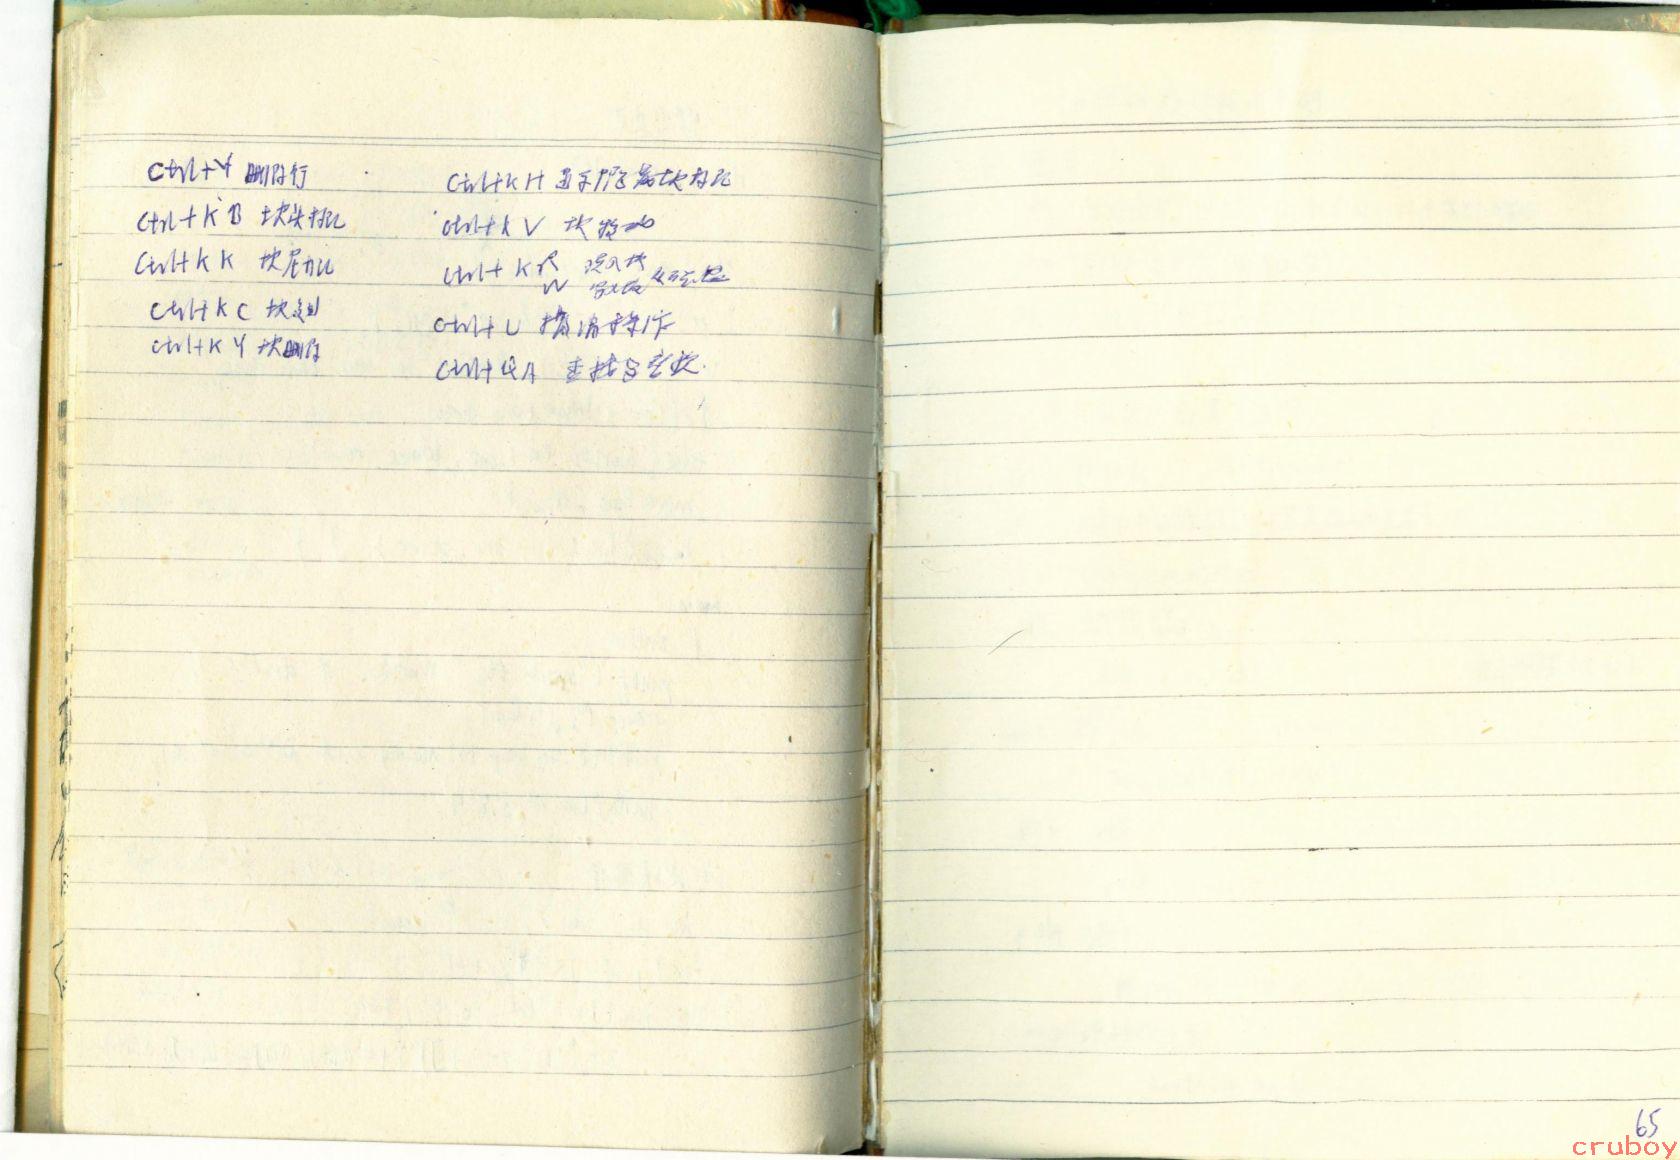 Ctrl+Y 删除行
Ctrl+K B 块头标记
Ctrl+K K 块尾标记
Ctrl+K C 块复制
Ctrl+K Y 块删除
Ctrl+K H 显示/隐藏块标记
Ctrl+K V 块移动
Ctrl+K R 读入块
W 写块
Ctrl+U 操作
Ctrl+QA 查找与替换.
65
cruboy